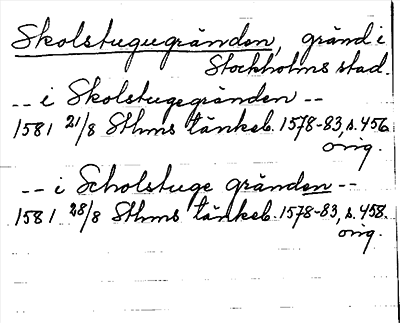 Skolstugugränden, gränd i
Stockholms stad.
-- i Skolstugegränden --
1581 21/8 Sthms tänkeb. 1578-83, s. 456
orig.
-- i Scholstuge gränden --
1581 28/8 Sthms tänkeb. 1578-83, s. 458.
orig.